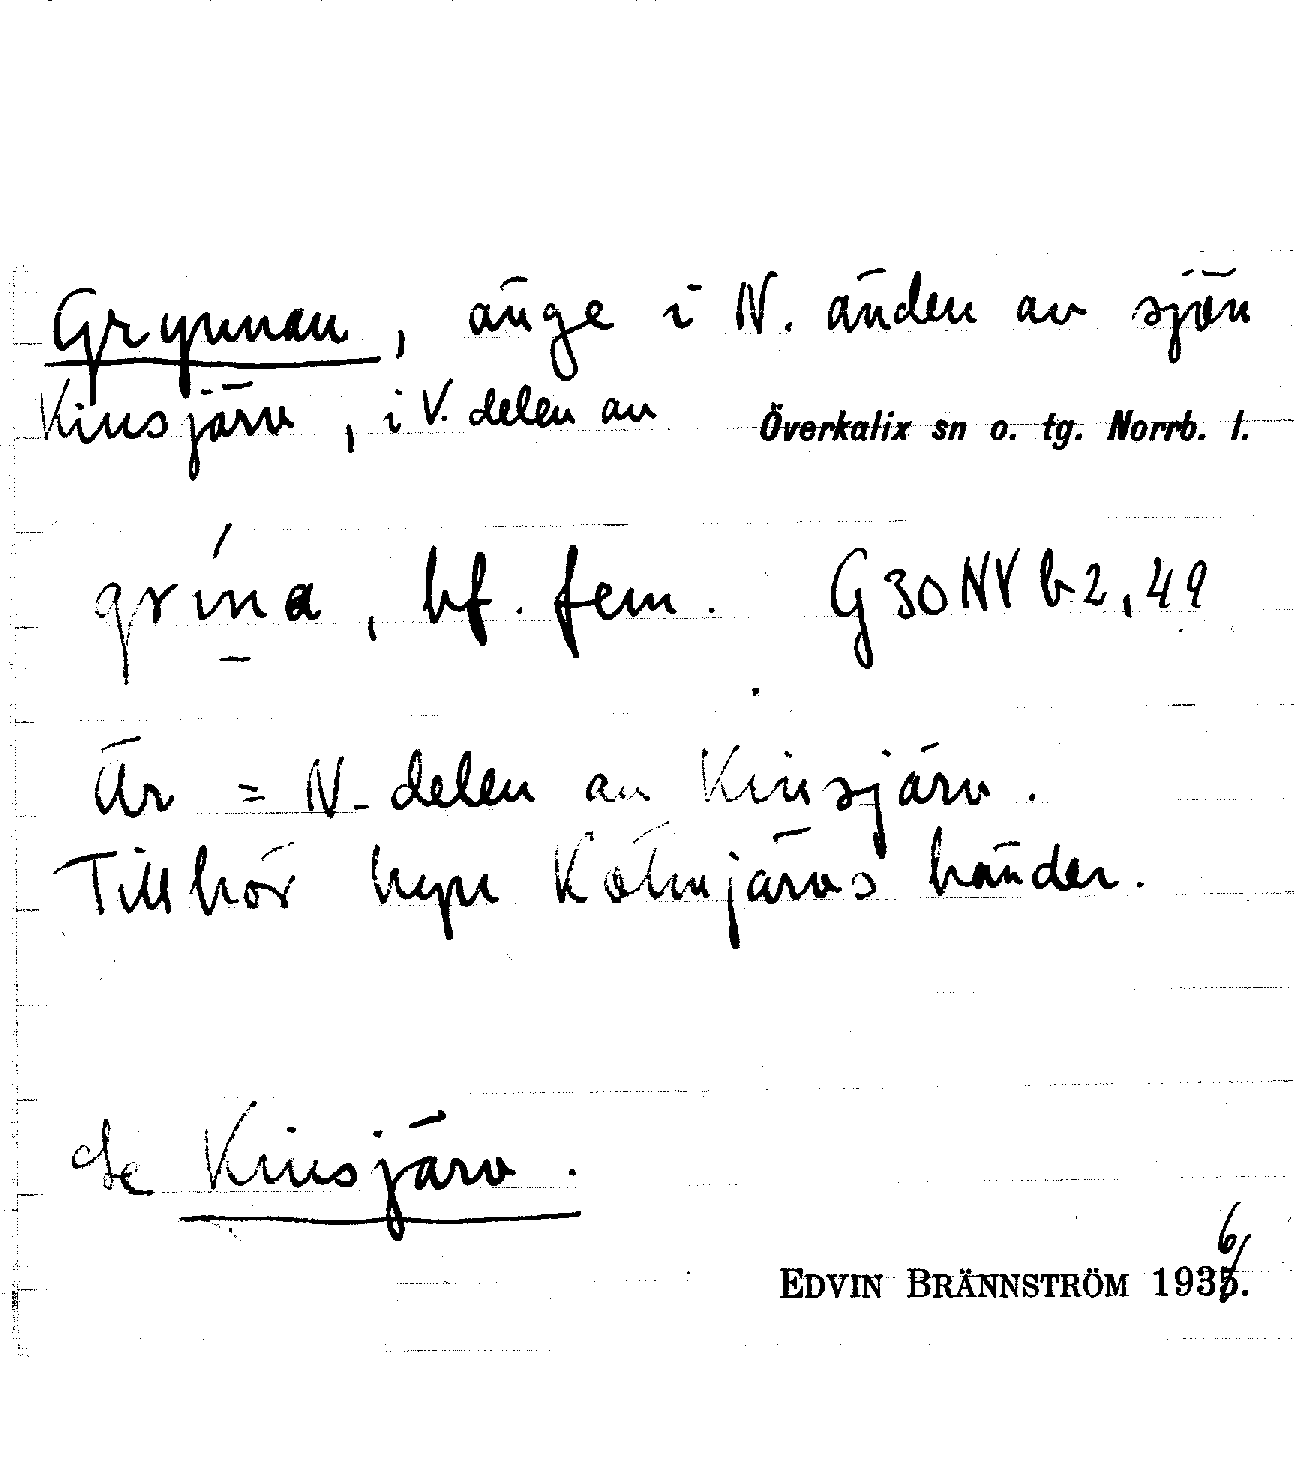 Grynnan, änge i N. änden av sjön
Kinsjärv, i V. delen av Överkalix sn o. tg. Norrb. l.
grína, bf. fem. G30NV b2,49
Är = N-delen av Kinsjärv.
Tillhör byn Kölmjärvs bönder.
Se Kinsjärv.
EDVIN BRÄNNSTRÖM 1936.